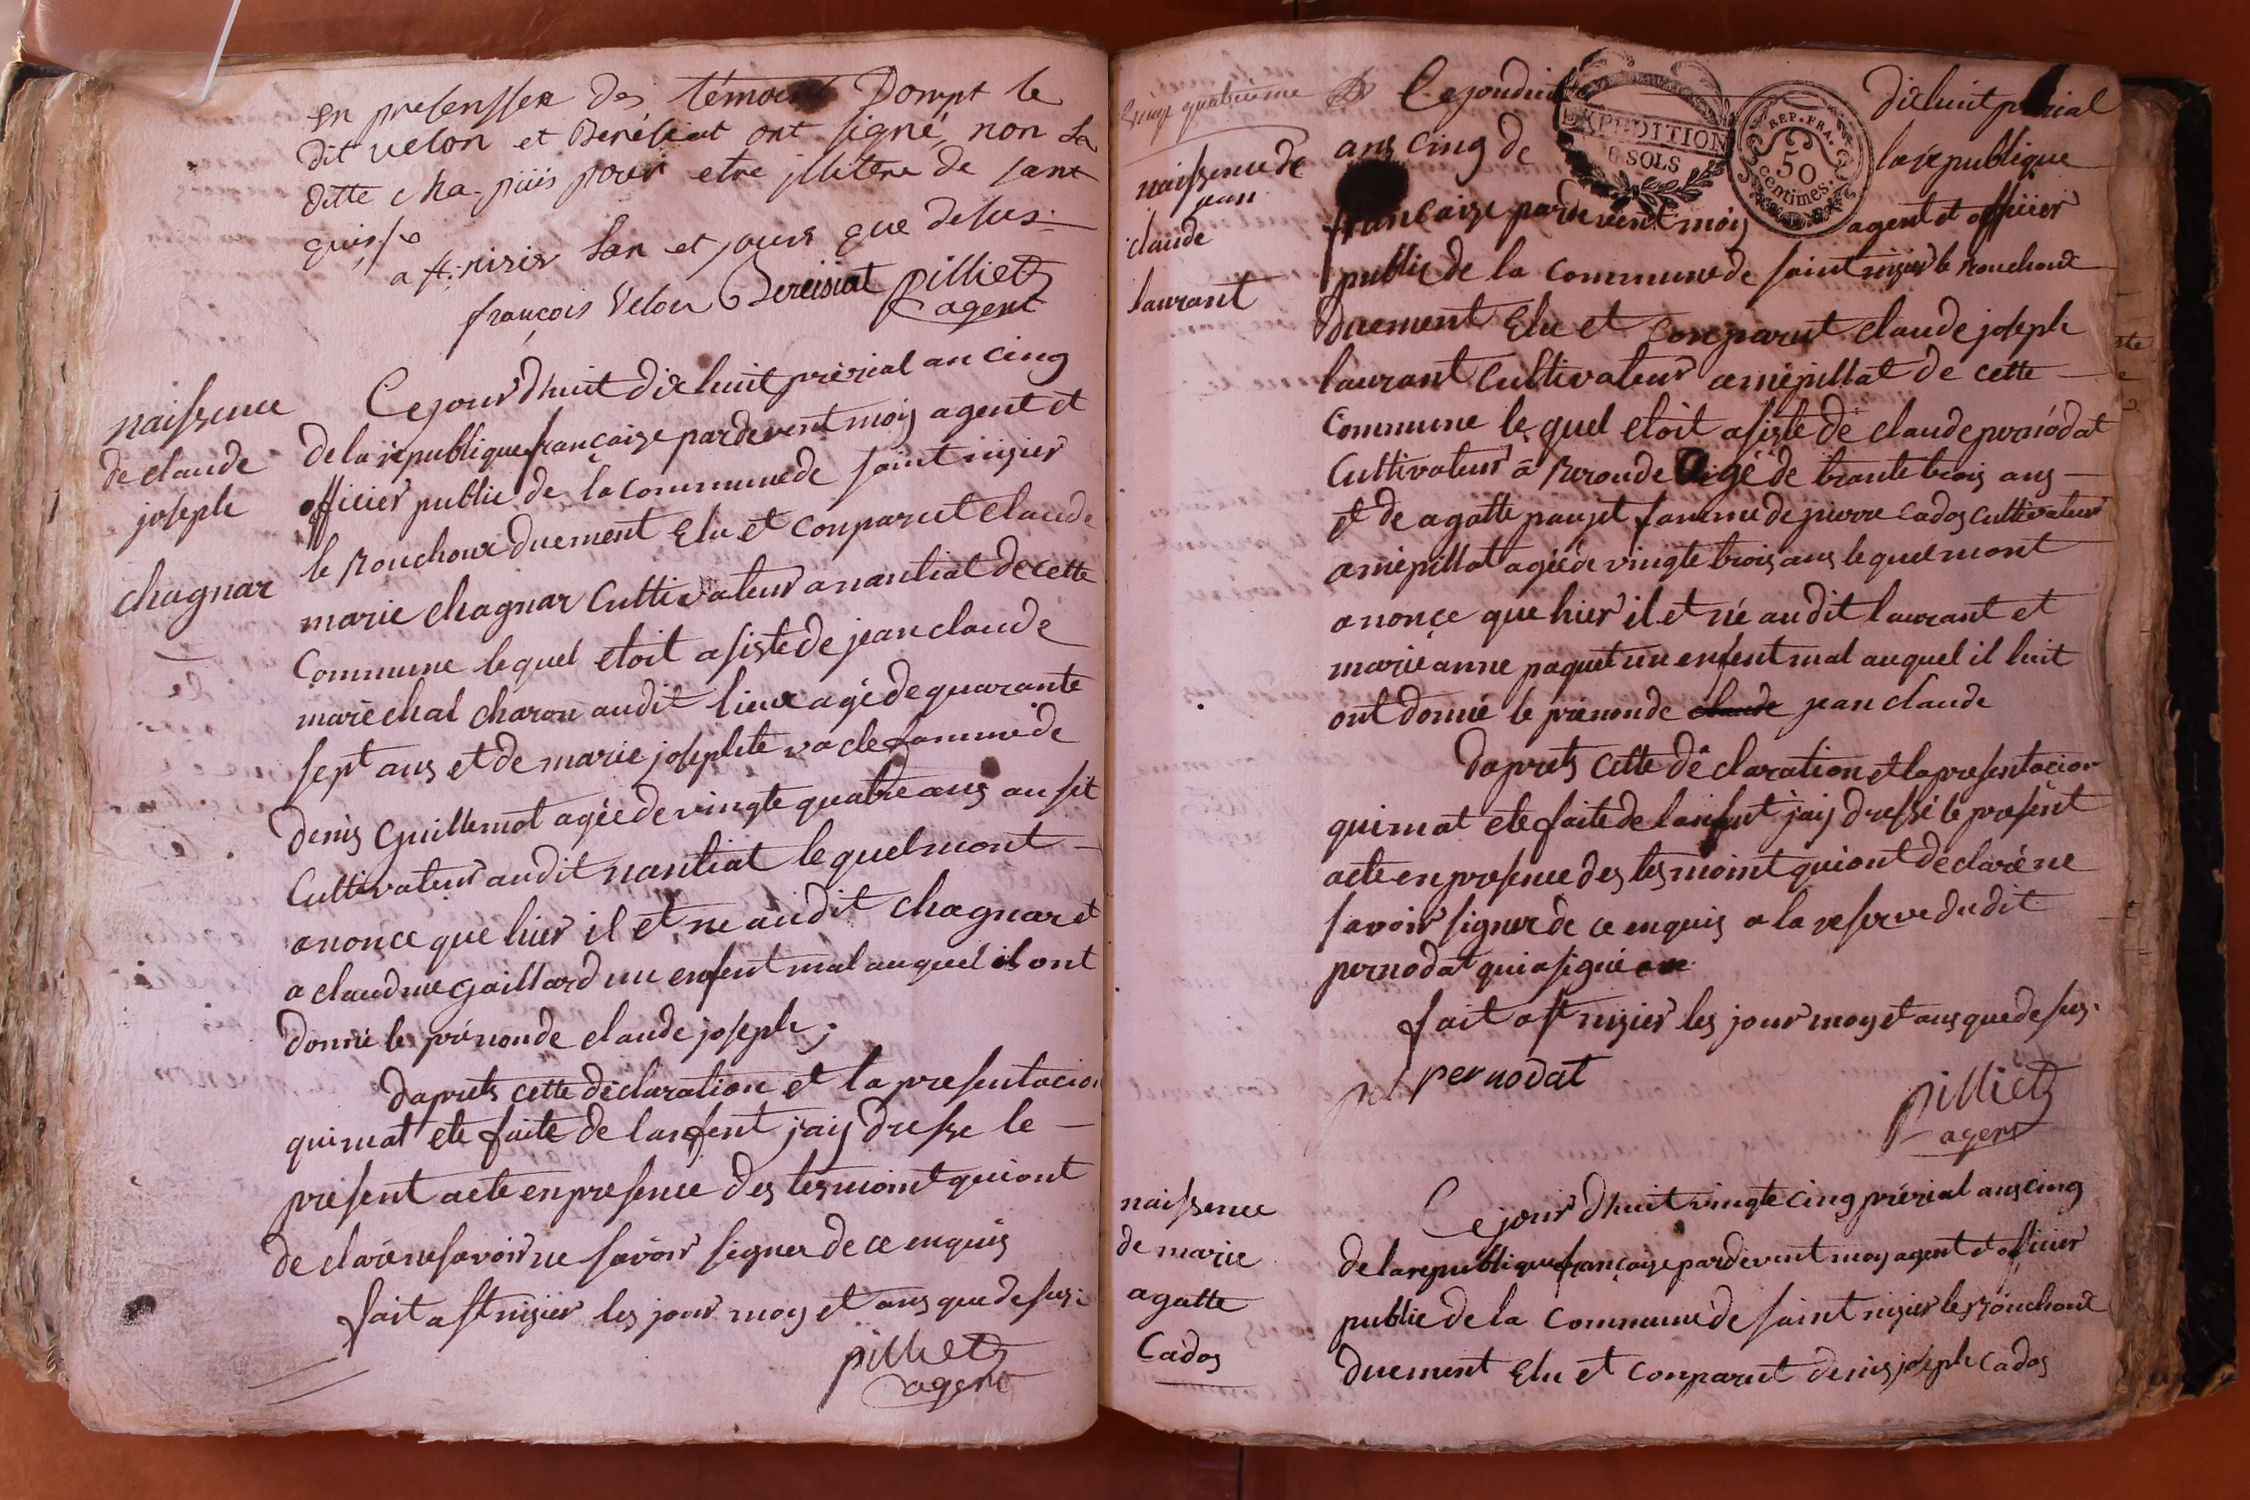 en presenssen des témoent Dompt le
dit velon et Dereisiat ont signé, non la
ditte cha-puis pour etre jllitere de sant
quis fe
a st: nisier lan et jours que desus:
françois Velon Dereisiat pilliet
agent
naissence
de claude
joseph
chagnar
Cejourdhuit dixhuit prérial an cinq
de la république française pardevent moij agent et
officier public de la commune de saint nizier
le Bouchoux duement Elu et conparut claude
marie chagnar Cultivateur a nantiat de cette
Commune lequel etoit asiste de jean claude
maréchal charon audit lieux agé de quarante
sept ans et de marie josephte vacle famme de
denis Guillemot agée de vingte quatre ans ausit
Cultivateur audit nantiat lequel mont
anonce que hier il et ne audit chagnar et
a claudine Gaillard un enfent mal auquel ils ont
donné le prénon de claude joseph;
daprets cette déclaration et la presentacion
qui mat ete faite de lanfent jaij dresse le
présent acte en presence des tesmoint qui ont
declaré ne savoir ne savoir signer de ce enquis
fait a st nizier les jour mois et ans que desus:
pilliet
agent
vingt quatrieme
naissence de
jean
claude
laurant
Cejourdui dixhuit prérial
ans cinq de la république
EXPEDITION
6 SOLS
REP. FRA.
50
centimes.
française pardevent moij agent et officier
public de la commune de saint nizier le Bouchoux
duement Elu et Conparut claude joseph
laurant Cultivateur a mépillat de cette
Commune lequel etoit asiste de claude pernodat
Cultivateur a Ronde agé de trante trois ans
et de agatte paujet famme de pierre cados cultivateur
a mépillat agée de vingte trois ans lequel mont
anonce que hier il et né audit laurant et
marie anne paquet un enfent mal auquel il luit
ont donné le prénon de claude jean claude
daprets cette déclaration et la presentacion
qui mat ete faite de lanfent jaij dressé le présent
acte en presence des tesmoint qui ont declaré ne
savoir signer de ce enquis a la reserve du dit
pernodat qui a signé
fait a st nizier les jour moy et ans que desus:
pernodat
pilliet
agent
naissence
de marie
agatte
Cados
Cejour dhuit vingte cinq prérial ans cinq
de la republique française pardevent moy agent et officier
public de la commune de saint nizier le Bouchoux
duement Elu et conparut denis joseph cados